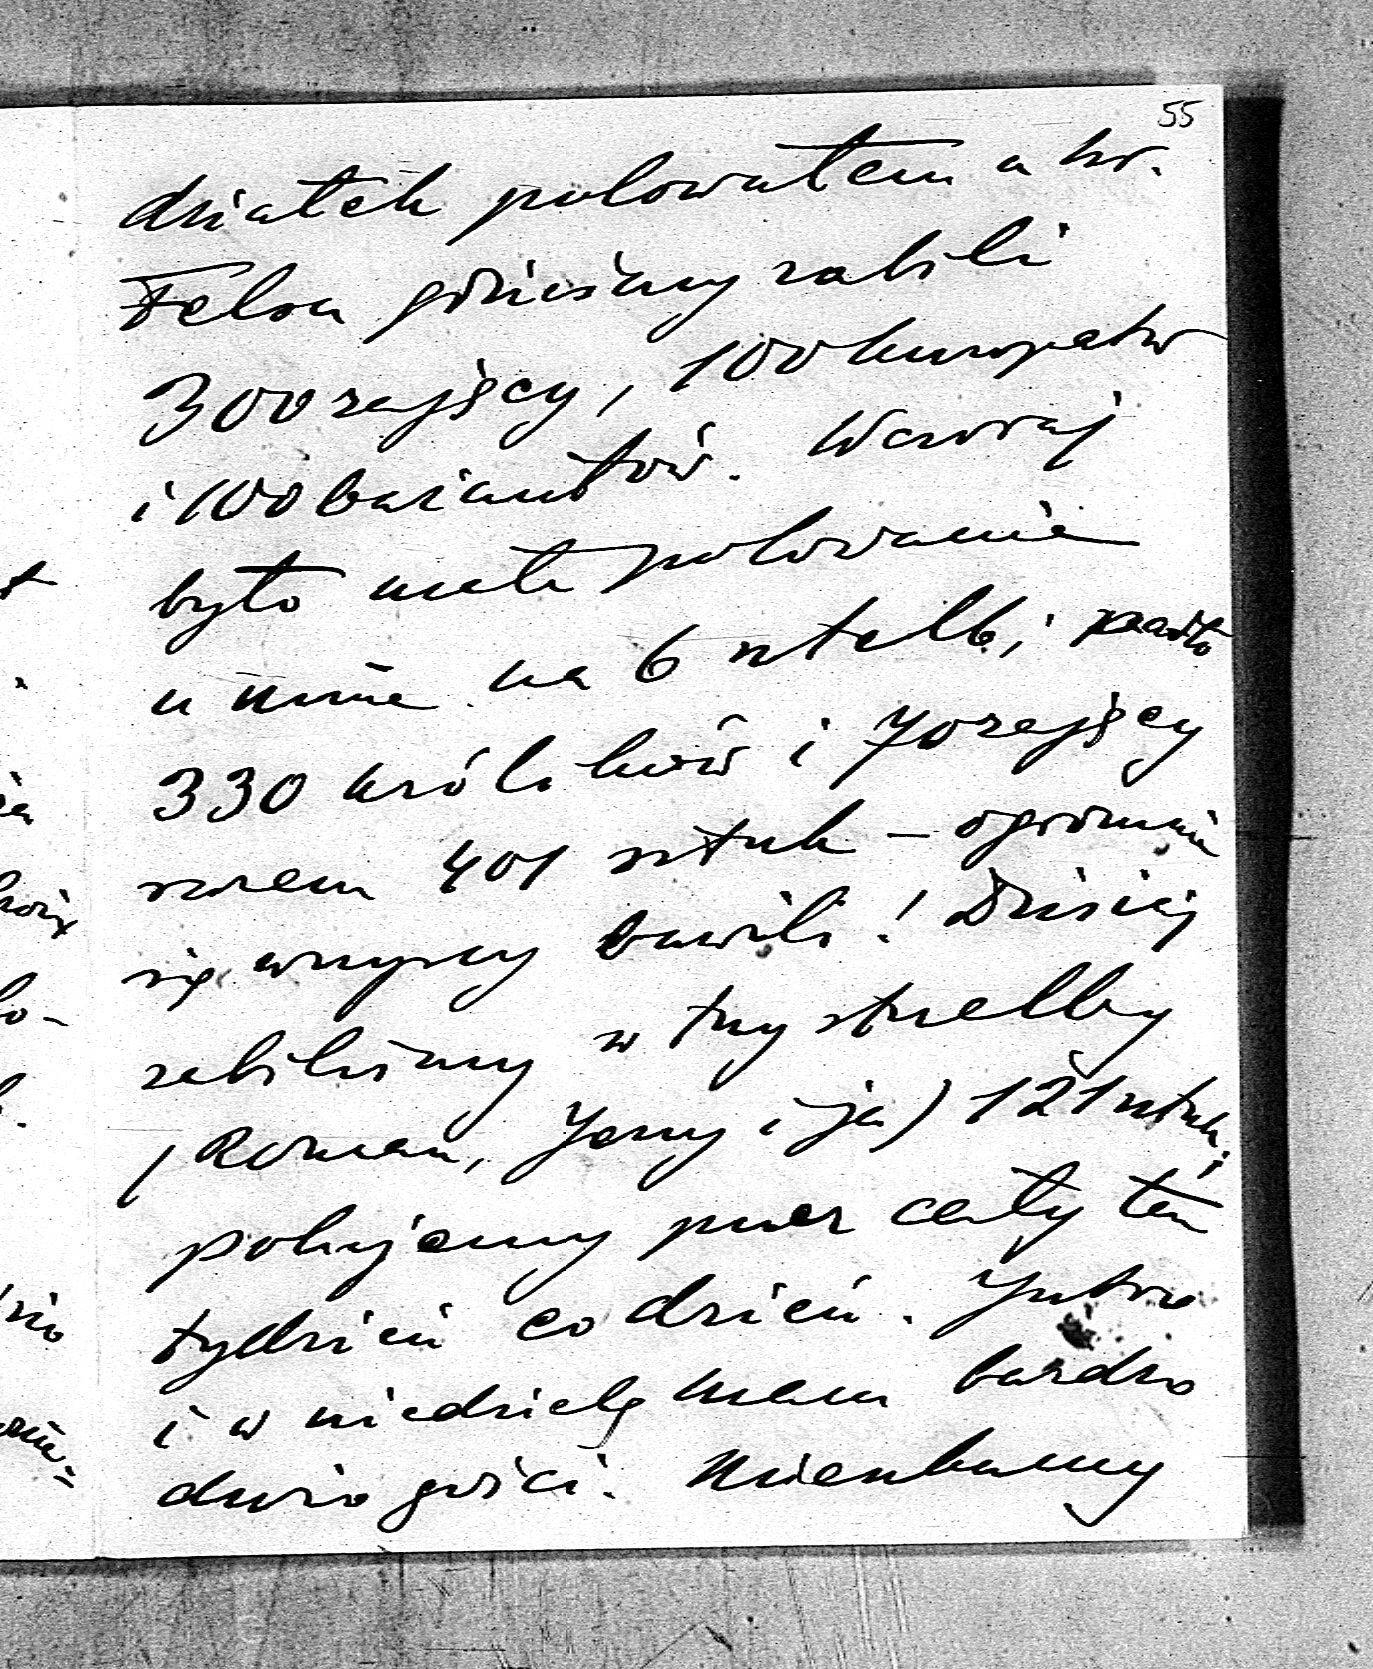 55
działek polowałem u hr.
Felsa gdzieśmy zabili
300 zajęcy, 100 kuropatw
i 100 bażantów. Wczoraj
było małe polowanie
u mnie na 6 strzelb, padło
330 królików i 70 zajęcy
razem 401 sztuk – ogromnie
się wszyscy bawili! Dzisiaj
zabiliśmy w trzy strzelby
(Roman, Jerzy i ja) 121 sztuk;
polujemy przez cały ten
tydzień codzień. Jutro
i w niedzielę mam bardzo
dużo gości. Mieszkamy